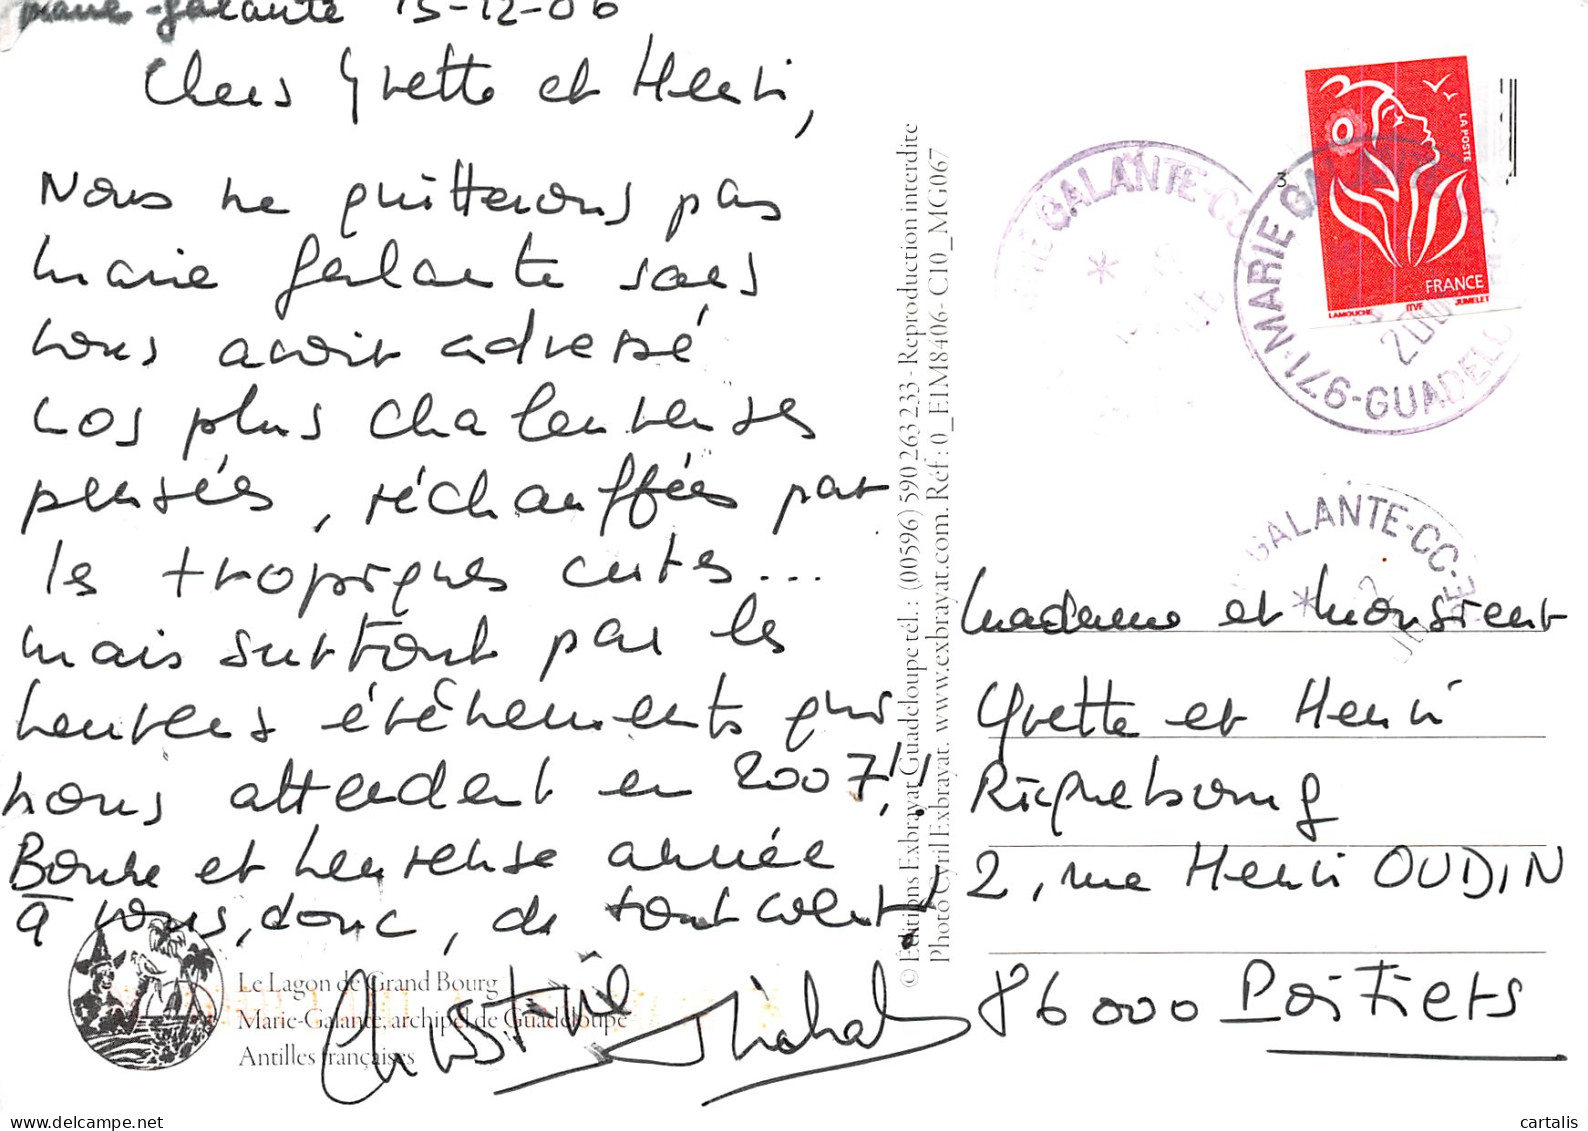 Marie-Galante 15-12-06
Chers Yvette et Henri,
Nous ne quitterons pas
Marie Galante sans
vous avoir adressé
nos plus chaleureuses
pensées, réchauffées par
les tropiques certes...
mais surtout par les
heureux événements qui
nous attendent en 2007!!
Bonne et heureuse année
à vous, donc, de tout coeur!
Christine Michel
Le Lagon de Grand Bourg
Marie-Galante, archipel de Guadeloupe
Antilles françaises
© Editions Exbrayat Guadeloupe tél.: (00596) 590 263 233 - Reproduction interdite
Photo Cyril Exbrayat. www.exbrayat.com. Réf: 0_EIM8406- C10_MG067
LA POSTE
FRANCE
LAMOUCHE ITVF JUMELET
3
GALANTE-CC
971-MARIE GALANTE
GUADELO
GALANTE-CC-
Madame et Monsieur
Yvette et Henri
Ricquebourg
2, rue Henri OUDIN
86000 Poitiers
cartalis
www.delcampe.net